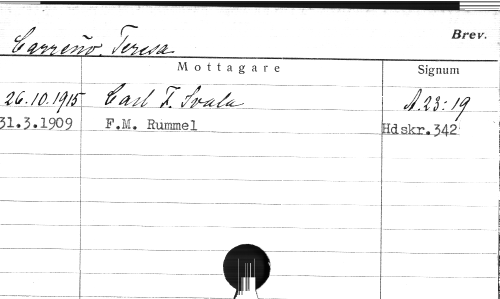 Brev.
Carreño, Teresa
Mottagare Signum
26.10.1915 Carl F. Svala A.23:19
31.3.1909 F.M. Rummel Hdskr.342